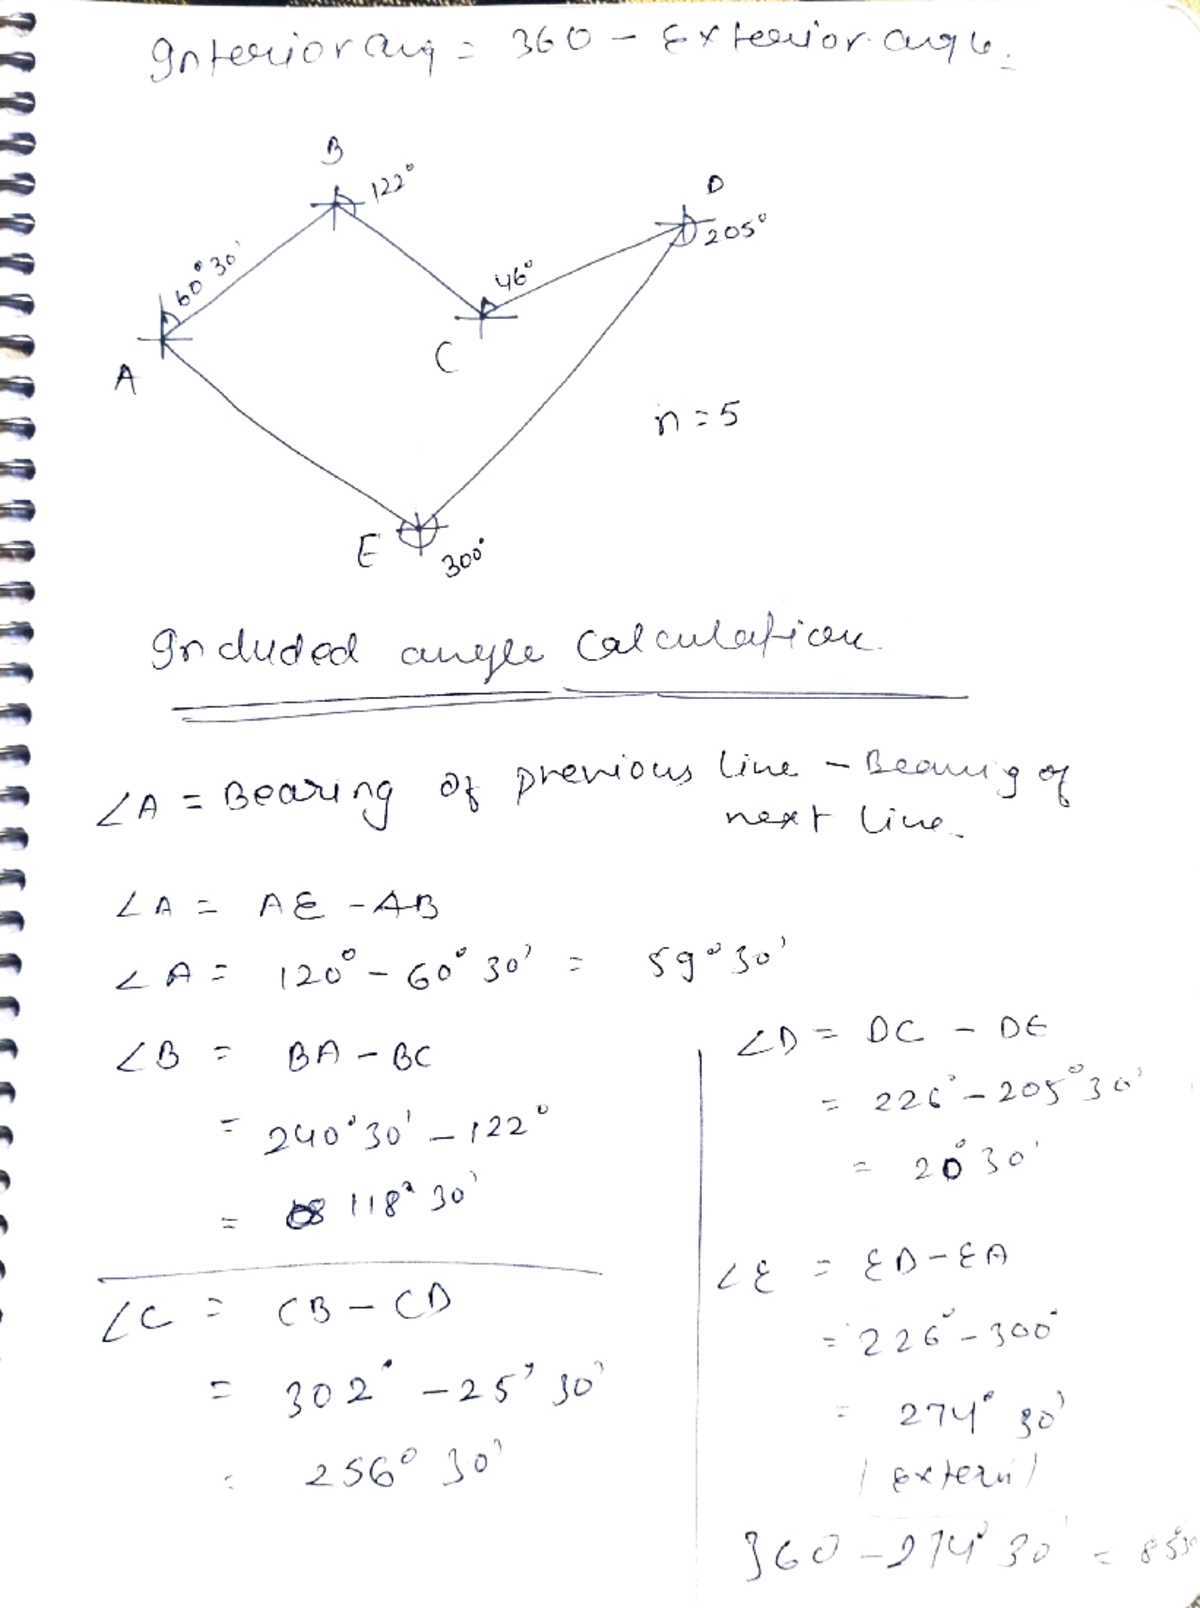 Interior ang = 360 - Exterior angle.
B
122°
D
205°
60°30'
46°
A
C
n = 5
E
300°
Included angle Calculation
∠A = Bearing of previous line - Bearing of
next line.
∠A = AE - AB
∠A = 120° - 60°30' = 59°30'
∠B = BA - BC
= 240°30' - 122°
= 118°30'
∠C = CB - CD
= 302° - 25°30'
= 256°30'
∠D = DC - DE
= 226° - 205°30'
= 20°30'
∠E = ED - EA
= 226° - 300°
= 274°30'
360 - 274°30' =